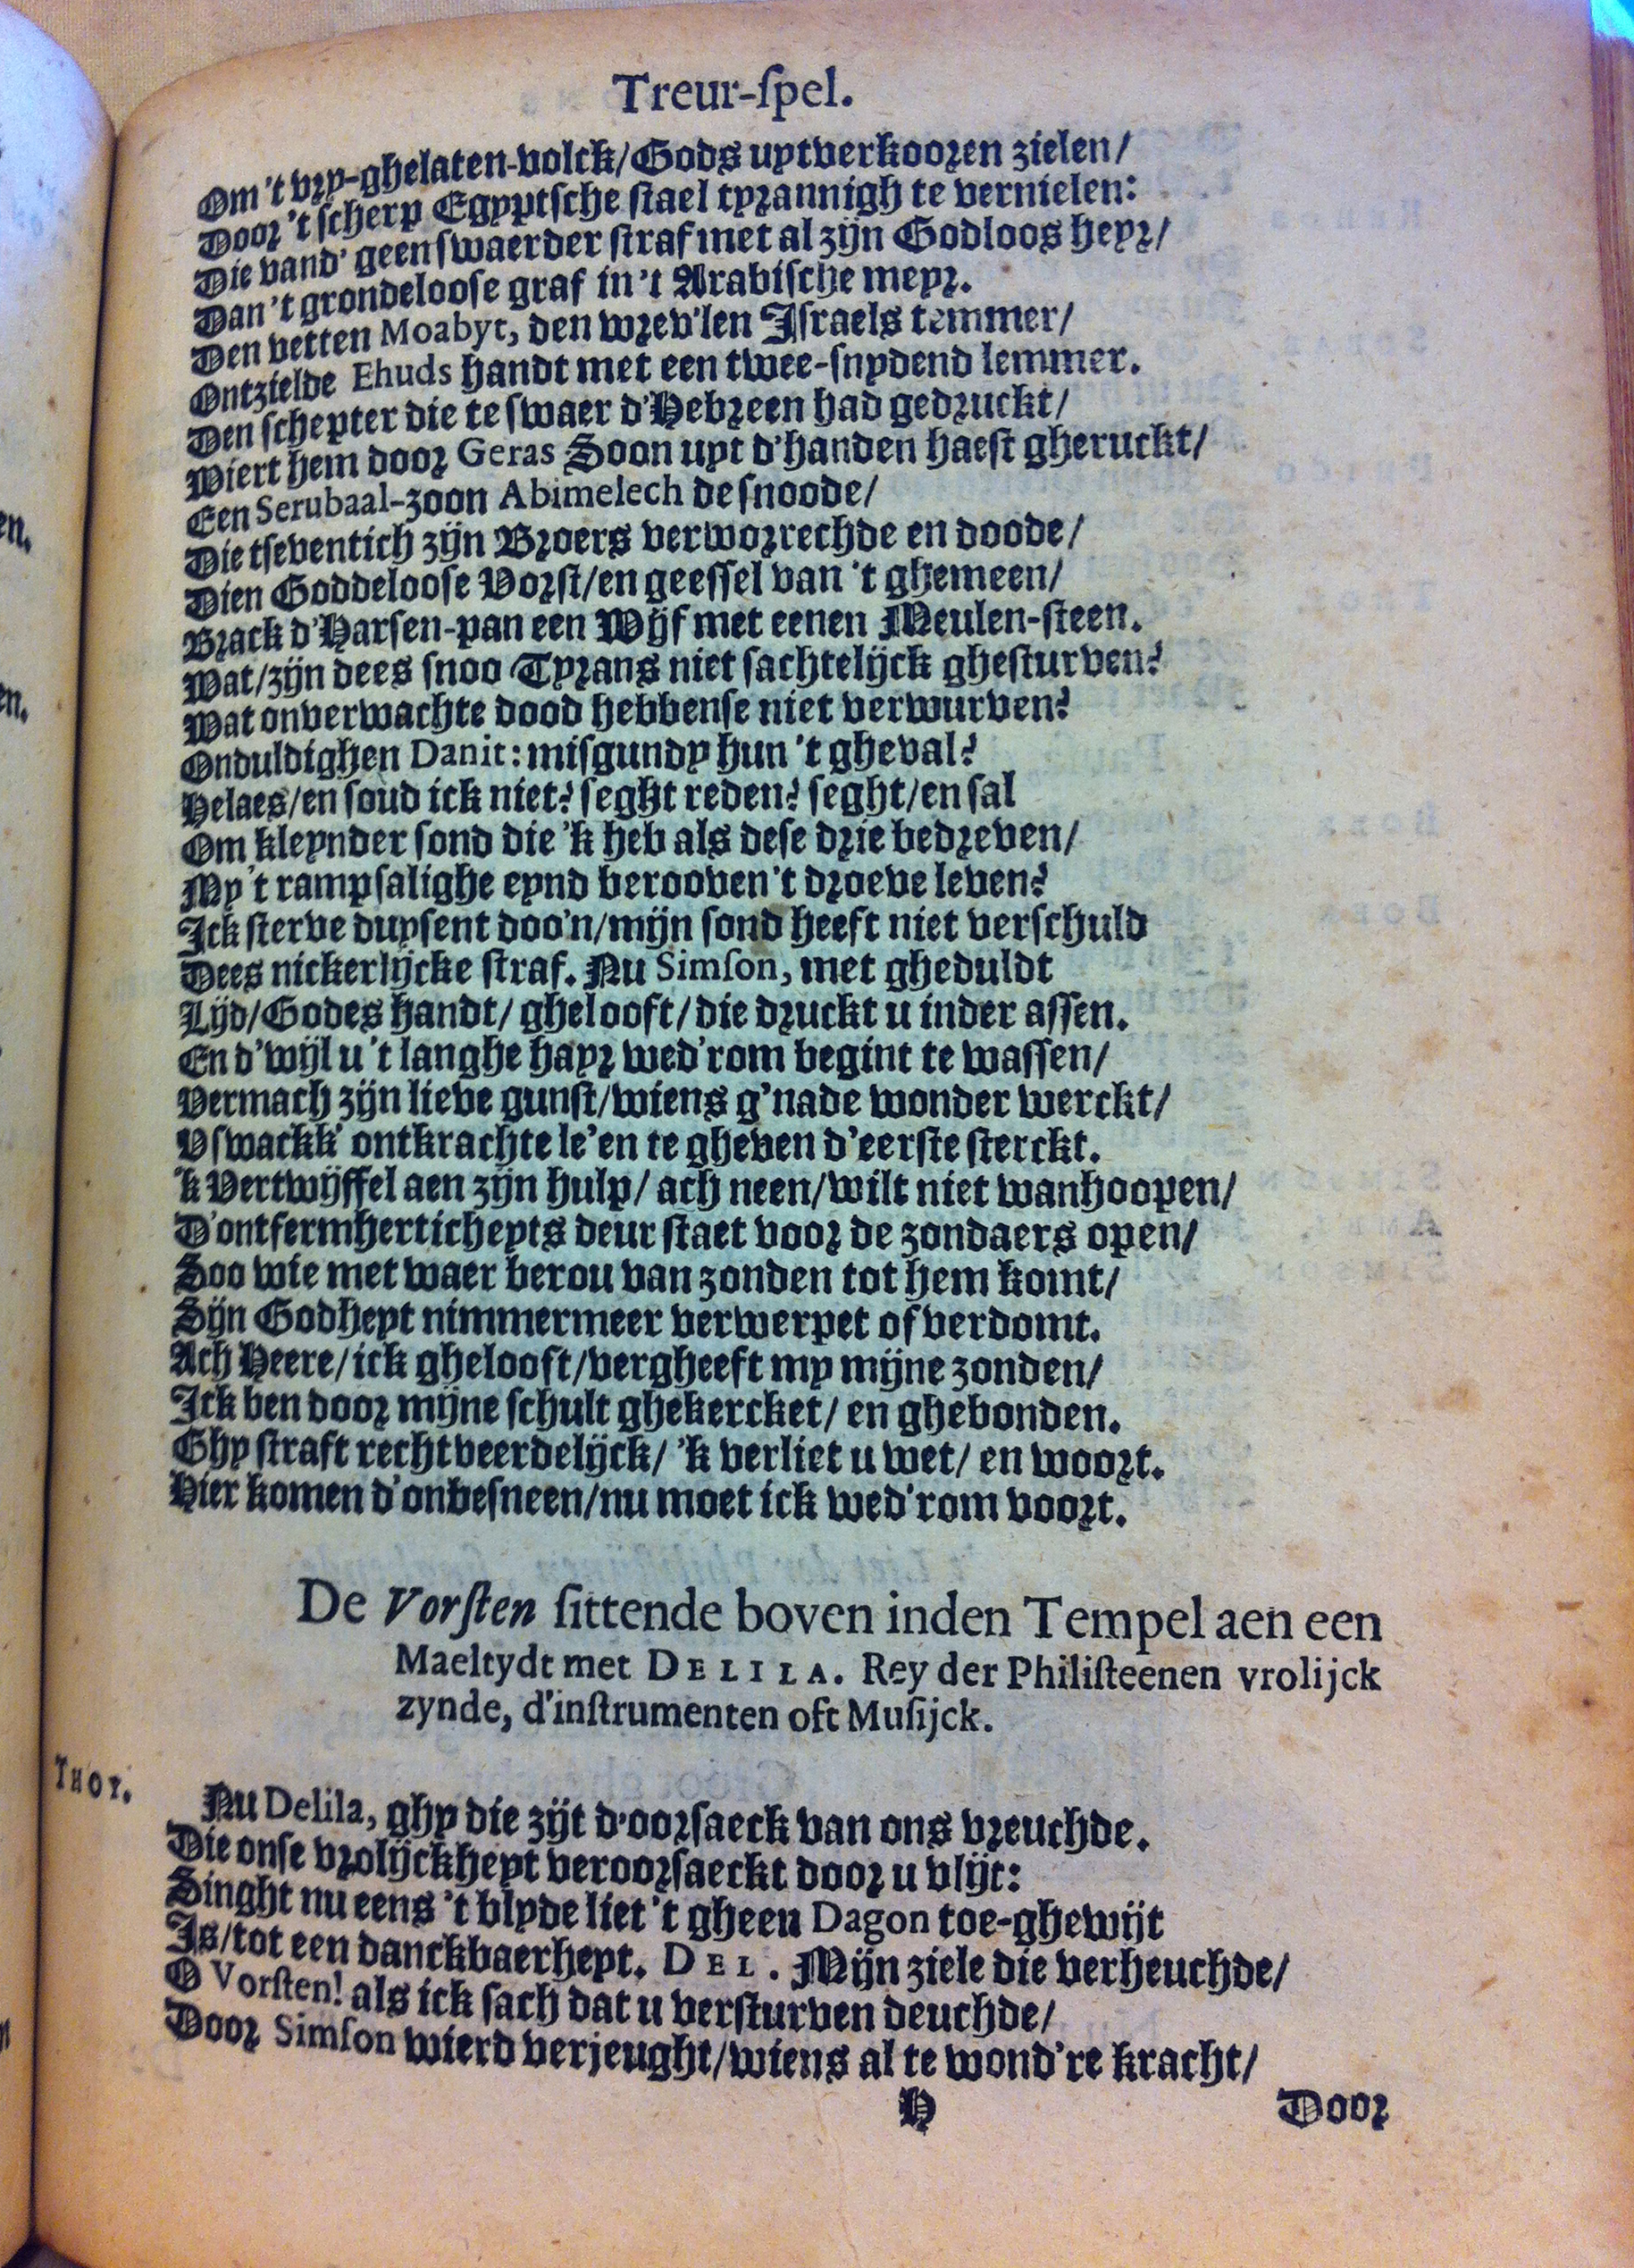 Treur-ſpel.
Om 't vry-ghelaten-volck/Gods uytverkooren zielen/
Door 't ſcherp Egyptſche ſtael tyrannigh te vernielen:
Die vand' geen ſwaerder ſtraf met al zijn Godloos heyr/
Dan 't grondelooſe graf in 't Arabiſche meyr.
Den vetten Moabyt, den wrev'len Iſraels temmer/
Ontzielde Ehuds handt met een twee-ſnydend lemmer.
Den ſchepter die te ſwaer d'Hebreen had gedruckt/
Wiert hem door Geras Soon uyt d'handen haeſt gheruckt/
Een Serubaal-zoon Abimelech de ſnoode/
Die tſeventich zijn Broers verworrechde en doode/
Dien Goddelooſe Vorſt/en geeſſel van 't ghemeen/
Brack d'Harſen-pan een Wijf met eenen Meulen-ſteen.
Wat/zijn dees ſnoo Tyrans niet ſachtelijck gheſturven?
Wat onverwachte dood hebbenſe niet verwurven?
Onduldighen Danit: miſgundy hun 't gheval?
Helaes/en ſoud ick niet? ſeght reden? ſeght/en ſal
Om kleynder ſond die 'k heb als deſe drie bedreven/
My 't rampſalighe eynd berooven 't droeve leven?
Ick ſterve duyſent doo'n/mijn ſond heeft niet verſchuld
Dees nickerlijcke ſtraf. Nu Simſon, met gheduldt
Lijd/Godes handt/ ghelooft/die druckt u inder aſſen.
En d'wijl u 't langhe hayr wed'rom begint te waſſen/
Vermach zijn lieve gunſt/wiens g'nade wonder werckt/
V ſwackk' ontkrachte le'en te gheven d'eerſte ſterckt.
'k Vertwijffel aen zijn hulp/ ach neen/wilt niet wanhoopen/
D'ontfermherticheyts deur ſtaet voor de zondaers open/
Soo wie met waer berou van zonden tot hem komt/
Sijn Godheyt nimmermeer verwerpet of verdomt.
Ach Heere/ick ghelooft/vergheeft my mijne zonden/
Ick ben door mijne ſchult ghekercket/ en ghebonden.
Ghy ſtraft rechtveerdelijck/ 'k verliet u wet/ en woort.
Hier komen d'onbeſneen/nu moet ick wed'rom voort.
De Vorſten ſittende boven inden Tempel aen een
Maeltydt met DELILA. Rey der Philiſteenen vrolijck
zynde, d'inſtrumenten oft Muſijck.
THOY. Nu Delila, ghy die zijt d'oorſaeck van ons vreuchde.
Die onſe vrolijckheyt veroorſaeckt door u vlijt:
Singht nu eens 't blyde liet 't gheen Dagon toe-ghewijt
Is/tot een danckbaerheyt. DEL. Mijn ziele die verheuchde/
O Vorſten! als ick ſach dat u verſturven deuchde/
Door Simſon wierd verjeught/wiens al te wond're kracht/
H Door